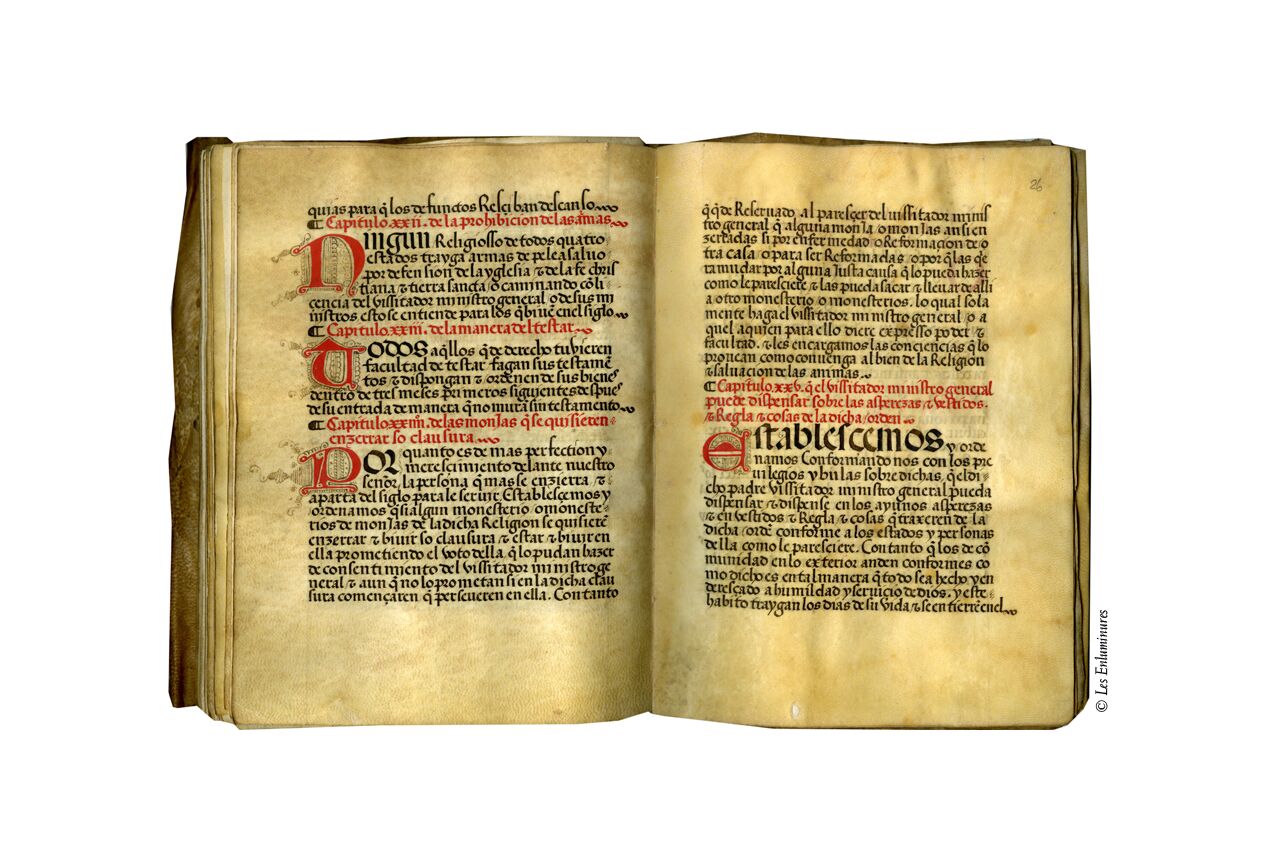 quias para q̃ los defunctos Resçiban descanso.
¶ Capitulo.xxii. de la prohibicion de las armas.
Ningun Religiosso de todos quatro
estados trayga armas de pelea saluo
por defension de la yglesia ⁊ de la fe chris
tiana ⁊ tierra sancta / o caminando cõ li
çencia del vissitador ministro general / o de sus mi
nistros. esto se entiende para los q̃ biuẽ en el siglo.
¶ Capitulo.xxiii. de la manera del testar.
Todos aq̃llos q̃ de derecho tuvieren
facultad de testar fagan sus testamẽ
tos ⁊ dispongan ⁊ ordenen de sus bienes
dentro de tres meses primeros siguientes despues
de su entrada de manera q̃ no mura sin testamento.
¶ Capitulo.xxiiii. de las monJas q̃ se quisieren
enzerrar so clausura.
Por quanto es de mas perfection y
meresçimiento delante nuestro
señor, la persona q̃ mas se enzierra, ⁊
aparta del siglo para le seruir. Establesçemos y
ordenamos q̃ si algun monesterio / o moneste-
rios de monJas de la dicha Religion se quisierẽ
enzerrar ⁊ biuir so clausura ⁊ estar ⁊ biuir en
ella prometiendo el voto della, q̃ lo pudan hazer
de consentimiento del vissitador ministro ge
neral ⁊ aun q̃ no lo prometan si en la dicha clau
sura començaren q̃ perseueren en ella. Con tanto
26
q̃ q̃de Reservado. al paresçer del vissitador minis
tro general q̃ alguna monJa / o monJas ansi en
zerradas si por enfermedad / o Reformacion de o
tra casa / o para ser Reformadas / o por q̃ las q̃e
ra mudar por alguna Justa causa q̃ lo pueda hazer
como le paresciere ⁊ las pueda sacar ⁊ lleuar de alli
a otro monesterio / o monesterios. lo qual sola
mente haga el vissitador ministro general / o a
quel a quien para ello diere expresso poder ⁊
facultad. ⁊ les encargamos las conciencias q̃ lo
prouean como conuenga al bien de la Religion
⁊ saluacion de las animas.
¶ Capitulo.xxv. q̃ el vissitador ministro general
puede dispensar sobre las asperezas / ⁊ vestidos.
⁊ Regla ⁊ cosas de la dicha / orden.
Establescemos y orde
namos Conformando nos con los pre
uilegios y bullas sobre dichas. q̃ el di-
cho padre Vissitador ministro general pueda
dispensar ⁊ dispense en los ayunos asperezas
⁊ en vestidos ⁊ Regla ⁊ cosas q̃ traxeren de la
dicha / ordẽ conforme a los estados y personas
della como le paresciere. Con tanto q̃ los de cõ
munidad en lo exterior anden conformes co
mo dicho es en tal manera q̃ todo sea hecho y en
deresçado a humildad y seruicio de dios. y este
habito traygan los dias de su vida ⁊ se entierrẽ en el.
© Les Enluminures